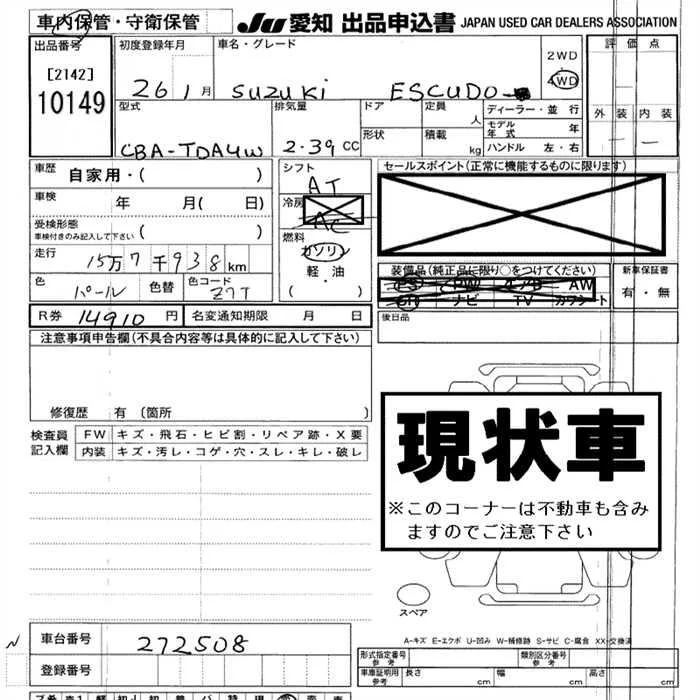 車内保管・守衛保管 JU 愛知 出品申込書 JAPAN USED CAR DEALERS ASSOCIATION
出品番号 初度登録年月 車名・グレード 評価点
[2142] 2WD
10149 26 1月 SUZUKI ESCUDO 4WD
型式 排気量 ドア 定員 人 ディーラー・並行 外装 内装
モデル年式 年
CBA-TDA4W 2.39 CC 形状 積載 kg ハンドル 左・右
車歴 自家用・( ) シフト セールスポイント(正常に機能するものに限ります)
AT
車検 年 月( 日) 冷房
AC
受検形態
車検付きのみ記入して下さい ( ) 燃料
ガソリン
走行 15万7千938km 軽・油 装備品(純正品に限り○をつけてください) 新車保証書
PS PW エアB AW 有・無
色 パール 色替 色コード Z7T ( ・ ) SR ナビ TV カワシート
R券 14910円 名変通知期限 月 日 後日品
注意事項申告欄(不具合内容等は具体的に記入して下さい)
現状車
修復歴 有 〔箇所 〕
検査員 FW キズ・飛石・ヒビ割・リペア跡・X要
記入欄 内装 キズ・汚レ・コゲ・穴・スレ・キレ・破レ
※このコーナーは不動車も含み
ますのでご注意下さい
スペア
A-キズ E-エクボ U-凹み W-補修跡 S-サビ C-腐食 XX-交換済
N 車台番号 272508
形式指定番号 参考 類別区分番号 参考
登録番号 車庫証明用 参考 長さ cm 幅 cm 高さ cm